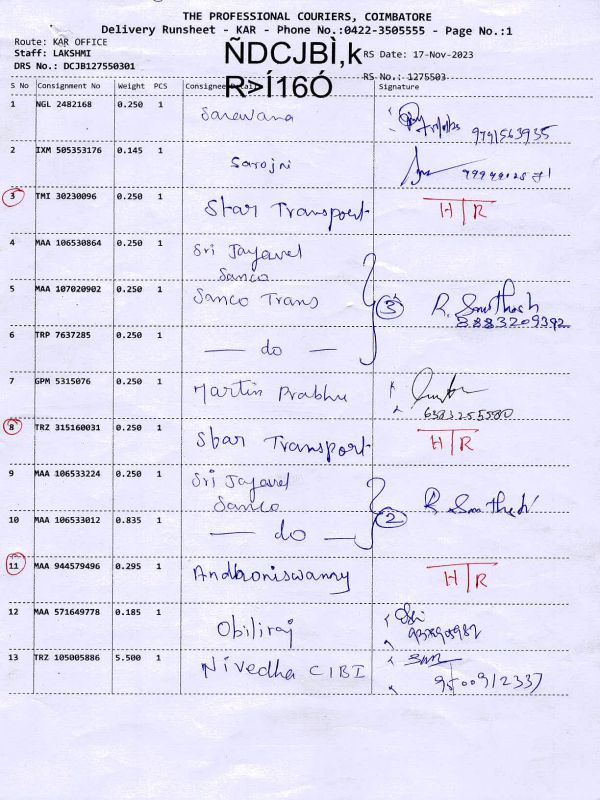 THE PROFESSIONAL COURIERS, COIMBATORE
Delivery Runsheet - KAR - Phone No.:0422-3505555 - Page No.:1
Route: KAR OFFICE
Staff: LAKSHMI
DRS No.: DCJB127550301
ÑDCJBÌ,k
R>Í16Ó
RS Date: 17-Nov-2023
RS No.: 1275503
S No Consignment No Weight PCS Consignee Signature
1 NGL 2482168 0.250 1 Sarewana 9791563935
2 IXM 505353176 0.145 1 Sarojni
3 TMI 30230096 0.250 1 Star Transport H R
4 MAA 106530864 0.250 1 Sri Jayavel
Sanco
5 MAA 107020902 0.250 1 Sanco Trans 3 R.
8883209392
6 TRP 7637285 0.250 1 — do —
7 GPM 5315076 0.250 1 Martin Prabhu
6383255580
8 TRZ 315160031 0.250 1 Star Transport H R
9 MAA 106533224 0.250 1 Sri Jayavel
Sanco
10 MAA 106533012 0.835 1 — do — 2 R.
11 MAA 944579496 0.295 1 H R
12 MAA 571649778 0.185 1 Obiliraj
13 TRZ 105005886 5.500 1 Nivedha CIBI
9500912337